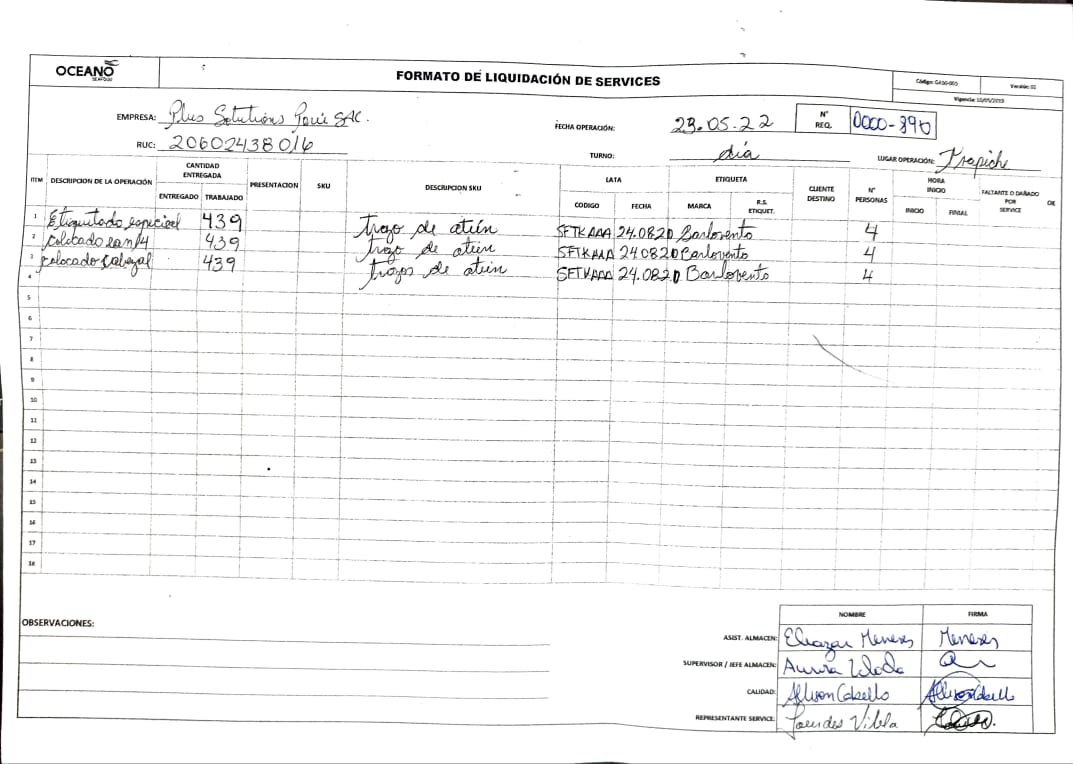 OCEANO
SEAFOOD
FORMATO DE LIQUIDACIÓN DE SERVICES
Código: GASG-005
Versión: 02
Vigencia: 10/05/2019
EMPRESA: Plus Solutions SAC.
RUC: 20602438016
FECHA OPERACIÓN: 23.05.22
N° REQ. 0000-890
TURNO: día
LUGAR OPERACIÓN: Trapiche
ITEM DESCRIPCION DE LA OPERACIÓN CANTIDAD ENTREGADA ENTREGADO TRABAJADO PRESENTACION SKU DESCRIPCION SKU LATA CODIGO FECHA ETIQUETA MARCA R.S. ETIQUET. CLIENTE DESTINO N° PERSONAS HORA INICIO INICIO FINIAL FALTANTE O DAÑADO POR SERVICE OK
1 Etiquetado especial 439 trozo de atún SFTKAAA 24.0820 Barlovento 4
2 colocado 439 trozo de atún SFTKAAA 24.0820 Barlovento 4
3 colocado Cabezal 439 trozos de atún SFTKAAA 24.0820 Barlovento 4
4
5
6
7
8
9
10
11
12
13
14
15
16
17
18
OBSERVACIONES:
NOMBRE FIRMA
ASIST. ALMACEN: Eliazar Meneses Meneses
SUPERVISOR / JEFE ALMACEN: Aurora
CALIDAD: Allison
REPRESENTANTE SERVICE: Lourdes Vilela